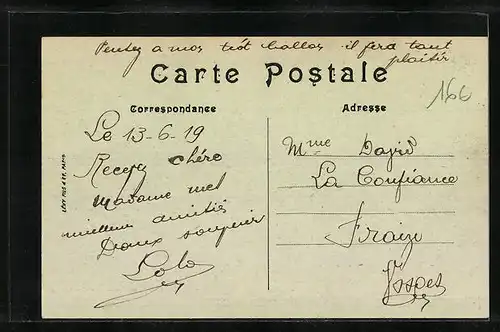 Pensez a mes trôt ballos il fera tant
plaisir
Carte Postale
166
Correspondance
Adresse
Le 13-6-19
Recevez chére
Madame mes
meilleur amitiés
Doux souvenir
Lolo
Mme David
La Confiance
Fraize
Vosges
LÉVY FILS & Cie, PARIS